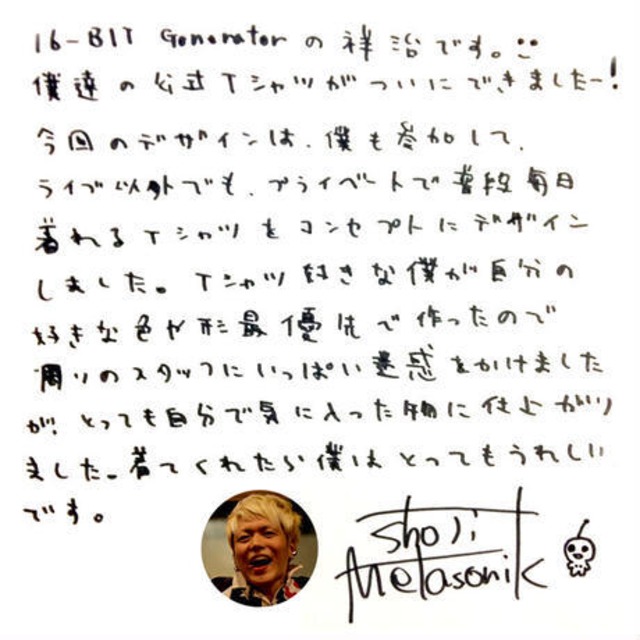 16-BIT Generatorの祥治です。
僕達の公式Tシャツがついにできましたー!
今回のデザインは、僕も参加して、
ライブ以外でも、プライベートで普段毎日
着れるTシャツをコンセプトにデザイン
しました。Tシャツ好きな僕が自分の
好きな色や形最優先で作ったので
周りのスタッフにいっぱい迷惑をかけました
が、とっても自分で気に入った物に仕上がり
ました。着てくれたら僕はとってもうれしい
です。
shoji
Metasonik